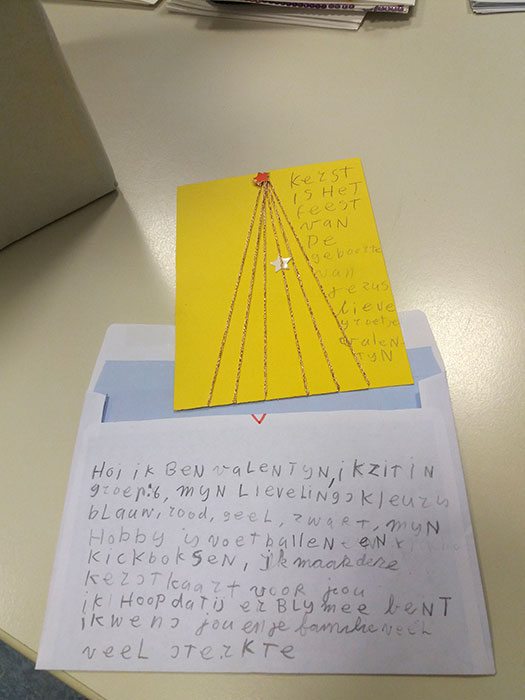 kerst
is HeT
feest
van
De
geboorte
van
jezus
lieve
groetje
valen-
TYN
Hoi ik BeN vaLeNTYN, ik ZIT IN
groep:6, MYN LIEVELINGSKLEUR IS
bLauw, rood, geel, zwart, MYN
HOBBY is voetballen en
KICKBOKSEN, ik maak deze
kerstkaart voor jou
ik HOOP dat jij er BLY mee beNT
ik wens jou en je familie veel
veel sterkte